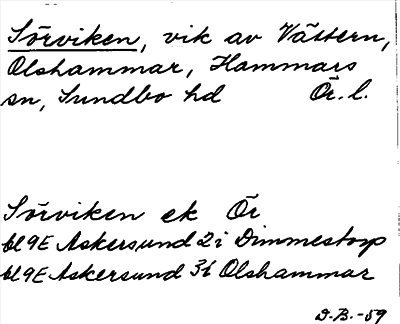 Sörviken, vik av Vättern,
Olshammar, Hammars
sn, Sundbo hd Ör. l.
Sörviken ek Ör
bl 9E Askersund 2i Dimmestorp
bl 9E Askersund 3i Olshammar
D.B.-59